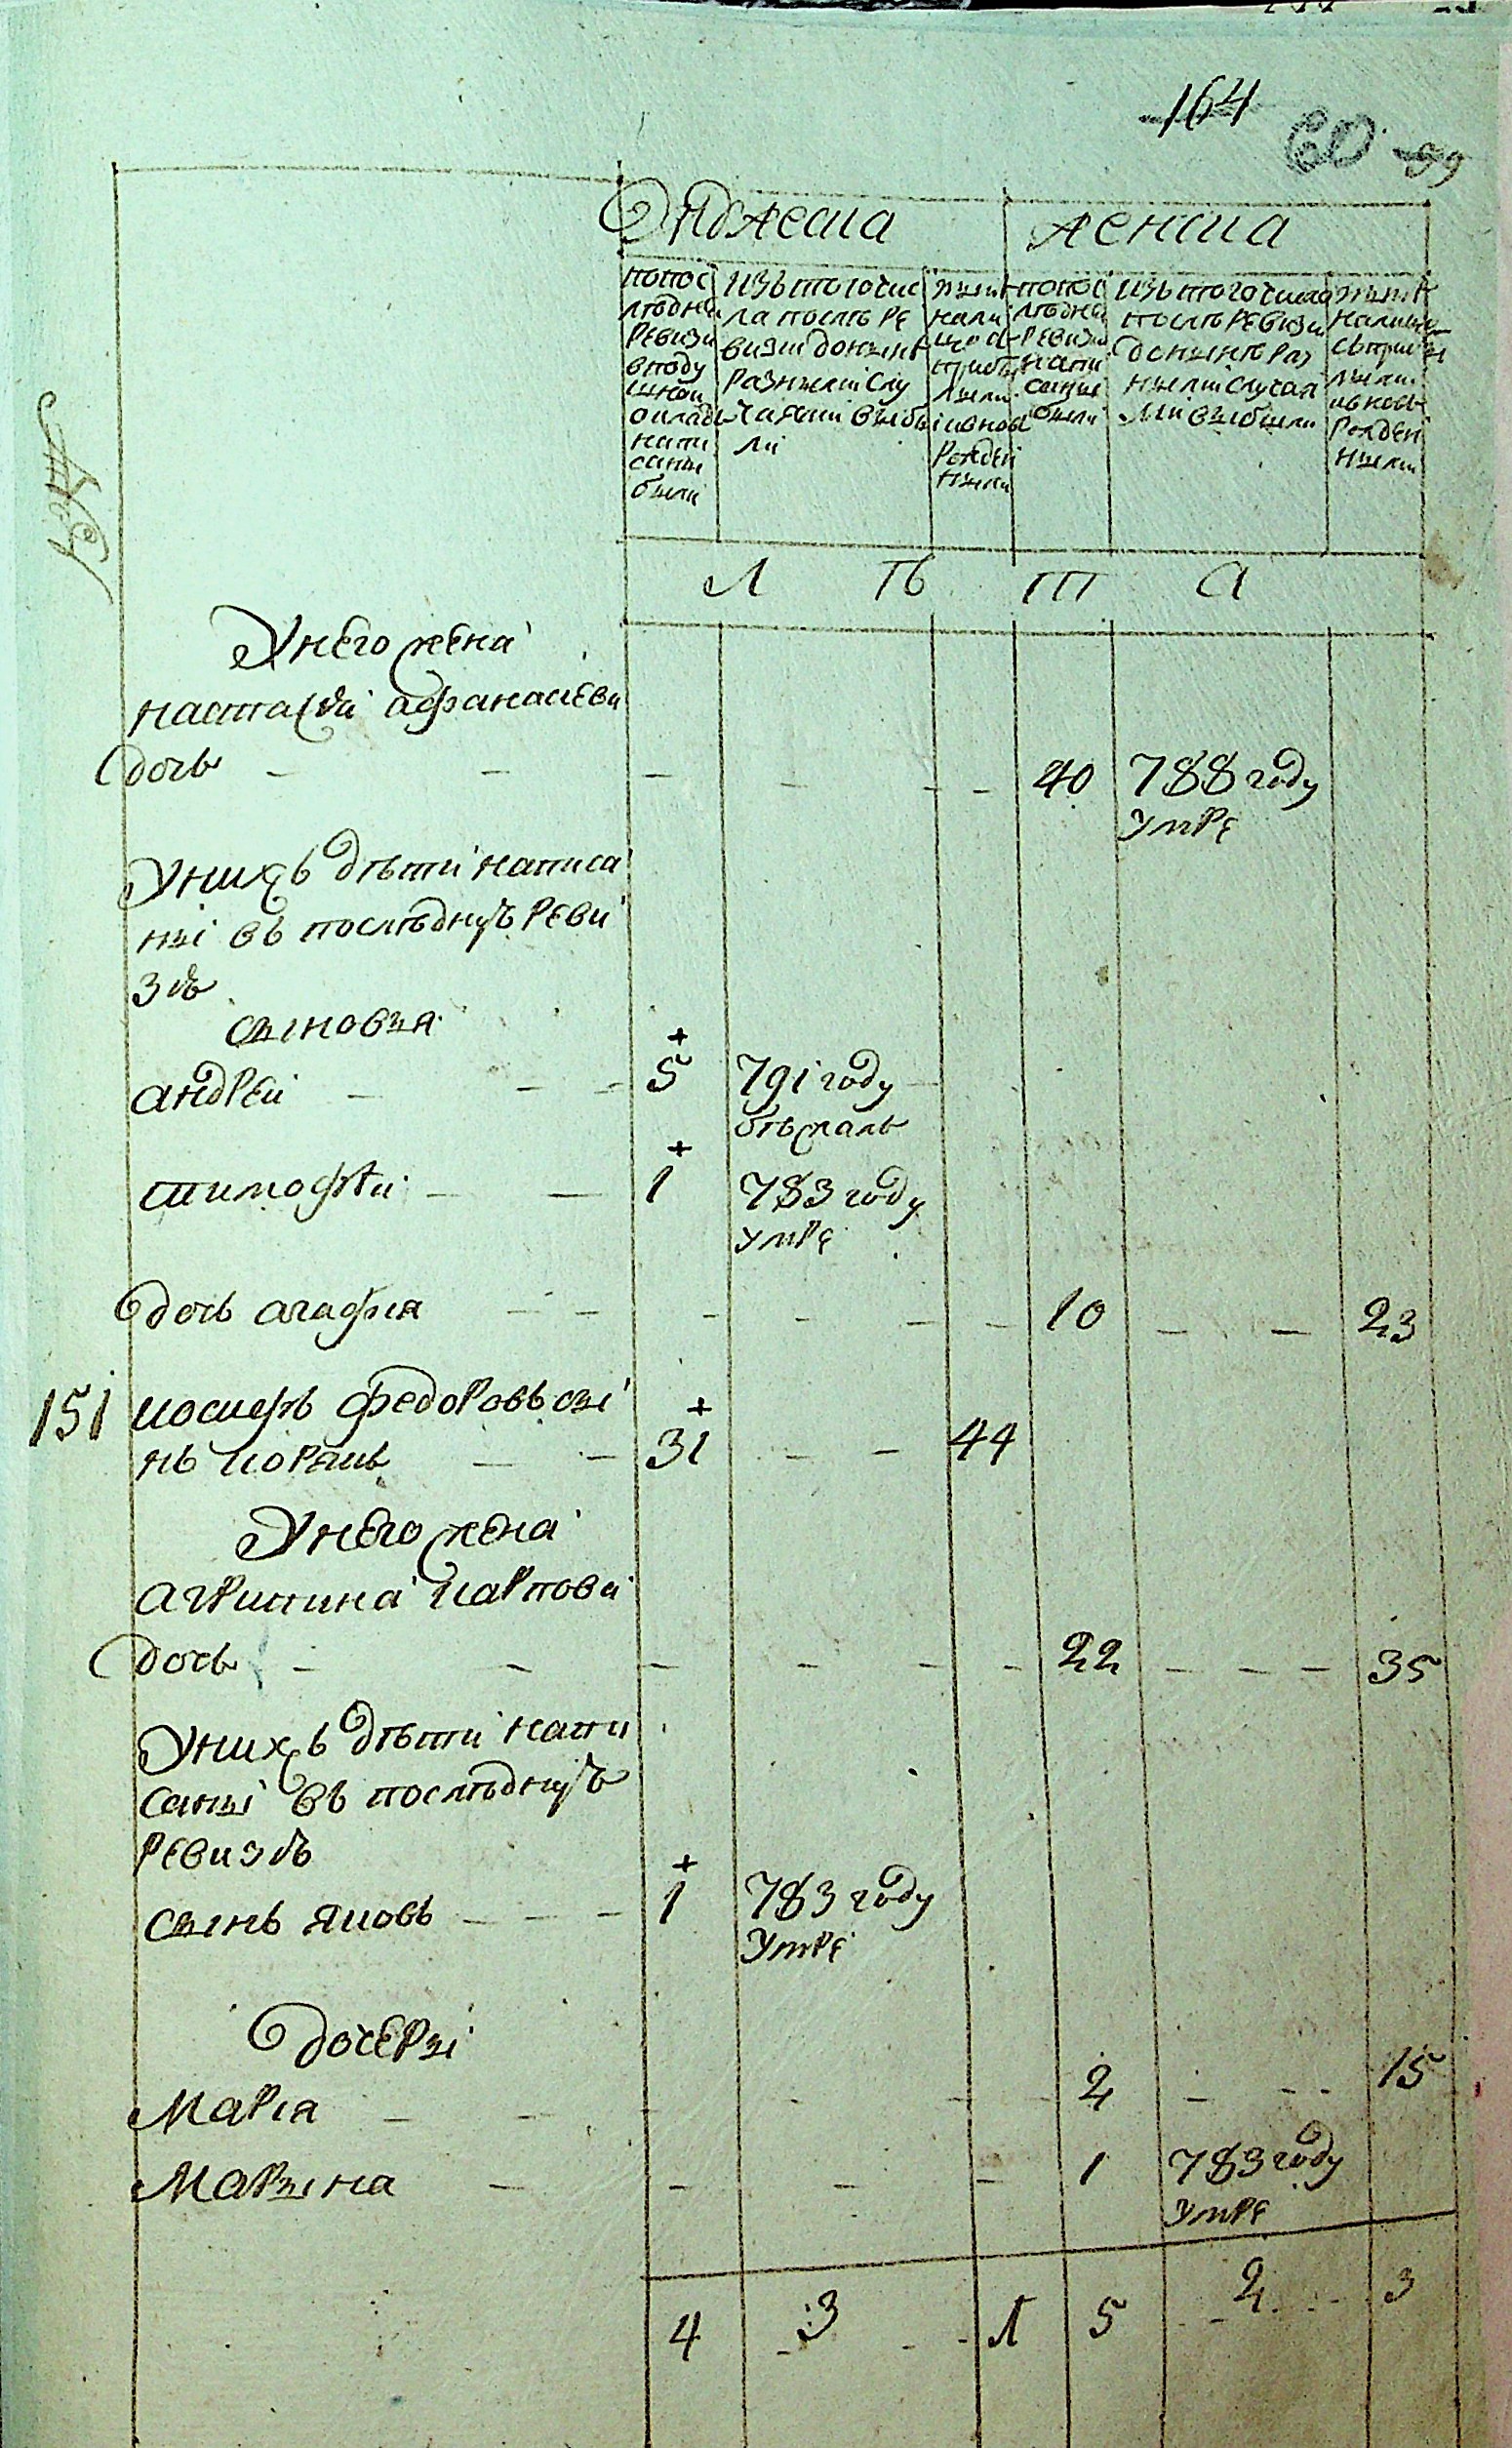 164
60 99
Мужеска женска
попос
ледней
Ревизи
вподу
шной
окладъ
напи
саны
были
Изъ того чис
ла послѣ Ре
визіи донынѣ
Разными слу
чаями выбы
ли
нынѣ
нали
цо съ
прибы
лыми
ивновь
Рожден
ными
попос
ледней
Ревизіи
напи
саны
были
изъ того числа
послѣ Ревизіи
донынѣ Раз
ными случая
ми выбыли
нынѣ
налицо
съприбы
лыми
ивновь
Рожден
ными
Л Ѣ Т А
Унего жена
настасья афанасиева
дочь - - - - - - 40 788 году
умре
Унихъ дѣти написа
ны въ последную Реви
зію
сыновья
андРей - - - 5 791 году
бѣжалъ
тимофѣй - - 1 783 году
умре
дочь агафия - - - - - - 10 - - 23
151 иосифъ федоРовъ сы
нъ коРякъ - - 31 - - 44
Унего жена
агРипина каРпова
дочь - - - - - - 22 - - - 35
Унихъ дѣти напи
саны въ последную
Ревизію
сынъ яковъ - - - 1 783 году
умре
дочеРы
МаРія - - - - - 2 - - - 15
МаРына - - - - 1 783 году
умре
4 - 3 - - 1 5 - 2 - - 3